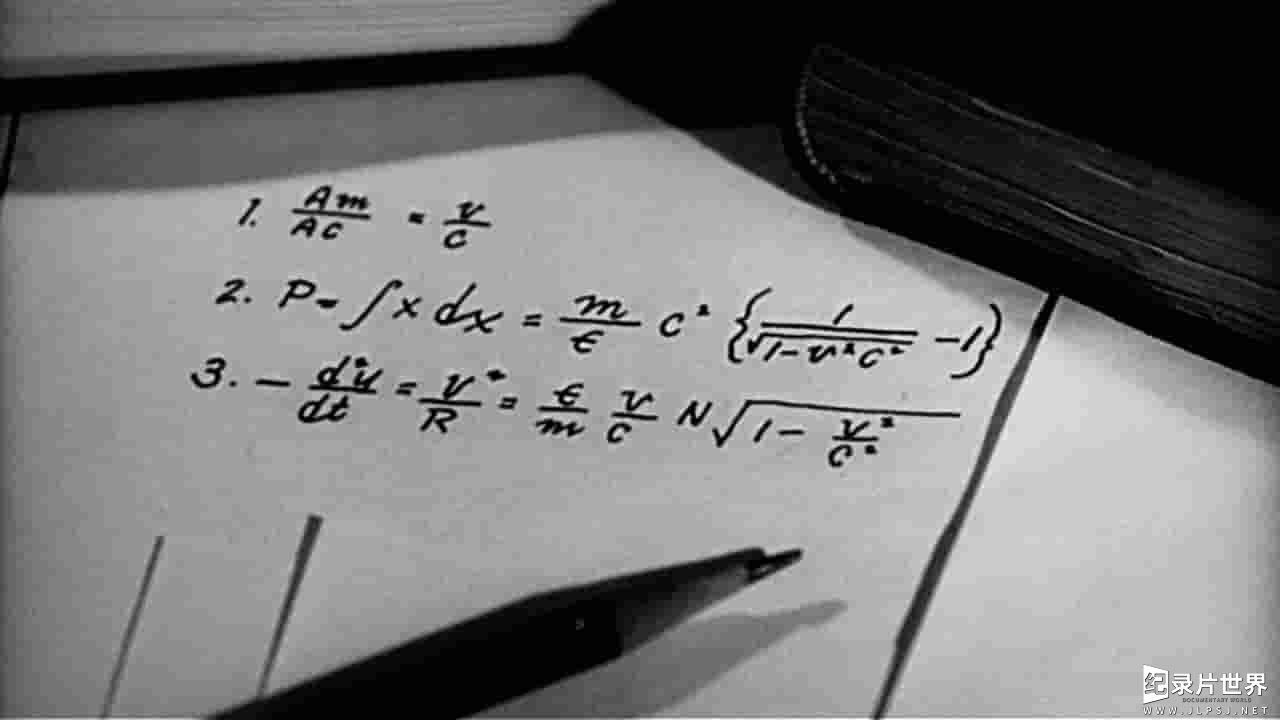 1. Am/Ac = v/c
2. P = ∫x dx = m/ε c² {1/√1-v²c² -1}
3. - d²u/dt = v²/R = ε/m v/c N√1- v²/c²
纪录片世界
DOCUMENTARY WORLD
WWW.JLPSJ.NET